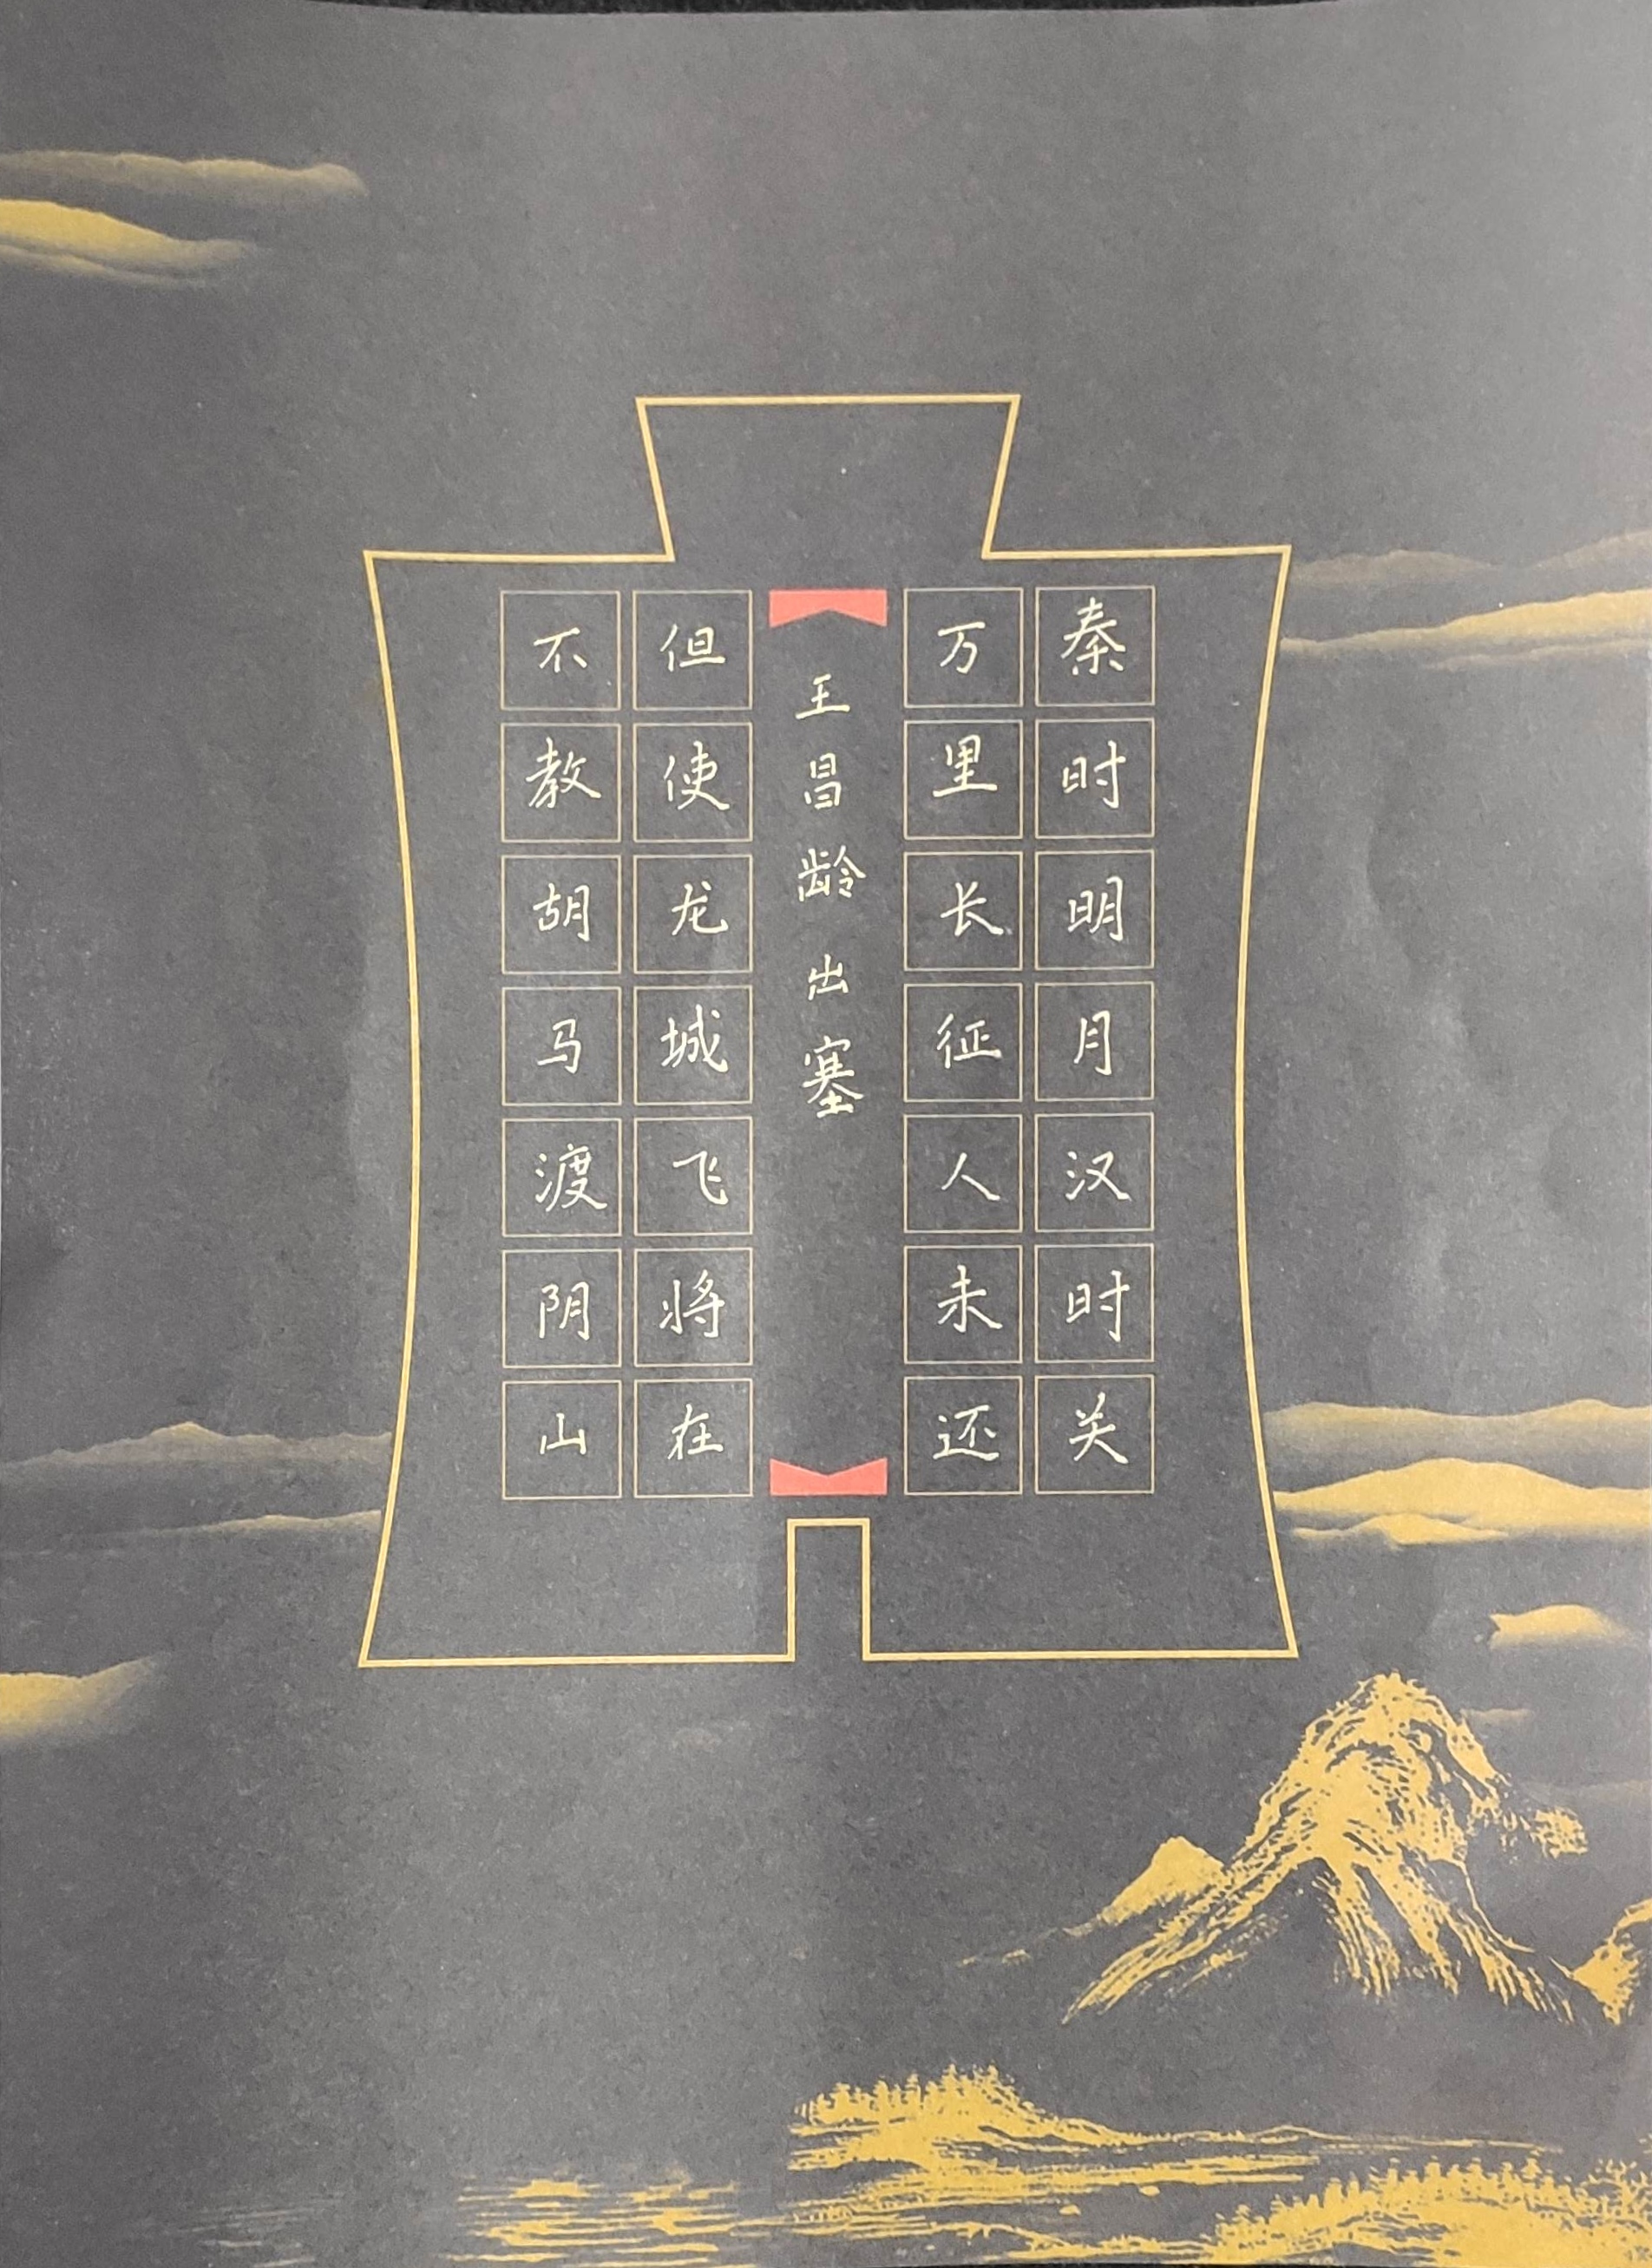 秦时明月汉时关
万里长征人未还
王昌龄出塞
但使龙城飞将在
不教胡马渡阴山